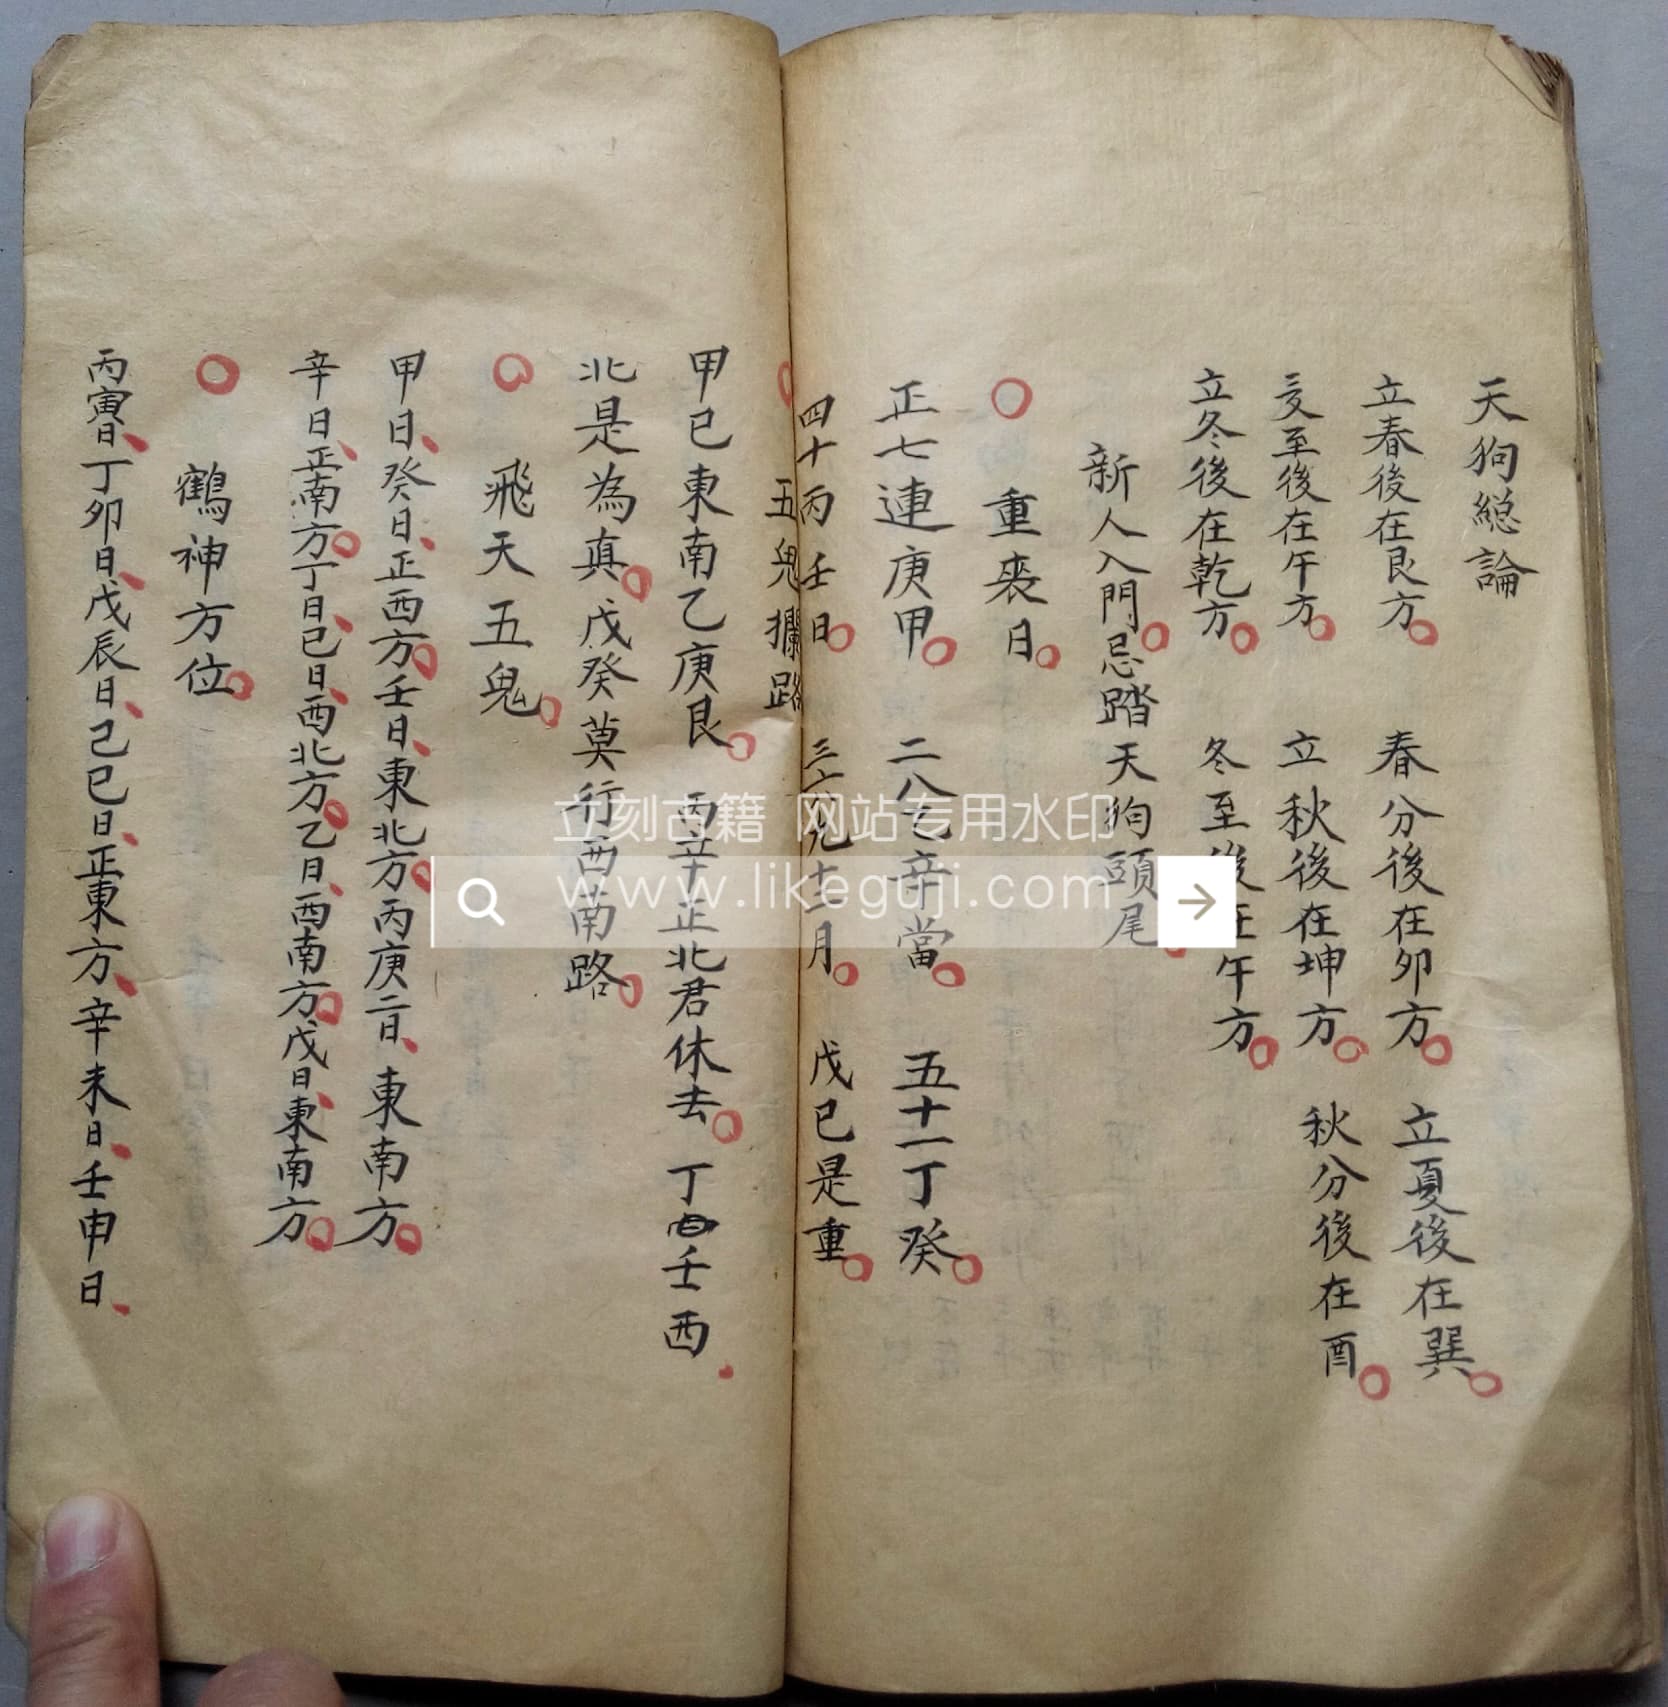 天狗総論
立春後在艮方 春分後在卯方 立夏後在巽
夏至後在午方 立秋後在坤方 秋分後在酉
立冬後在乾方 冬至後在午方
新人入門忌踏天狗頭尾
重喪日
正七連庚甲 二八乙辛當 五十一丁癸
四十丙壬日 三六九十二月 戊己是重
五鬼攔路
甲已東南乙庚艮 丙辛正北君休去 丁壬西
北是為真 戊癸莫行西南路
飛天五鬼
甲日癸日正西方壬日東北方丙庚二日東南方
辛日正南方丁日巳日西北方乙日西南方戊日東南方
鶴神方位
丙寅日丁卯日戊辰日己巳日正東方辛未日壬申日
立刻古籍 网站专用水印
www.likeguji.com